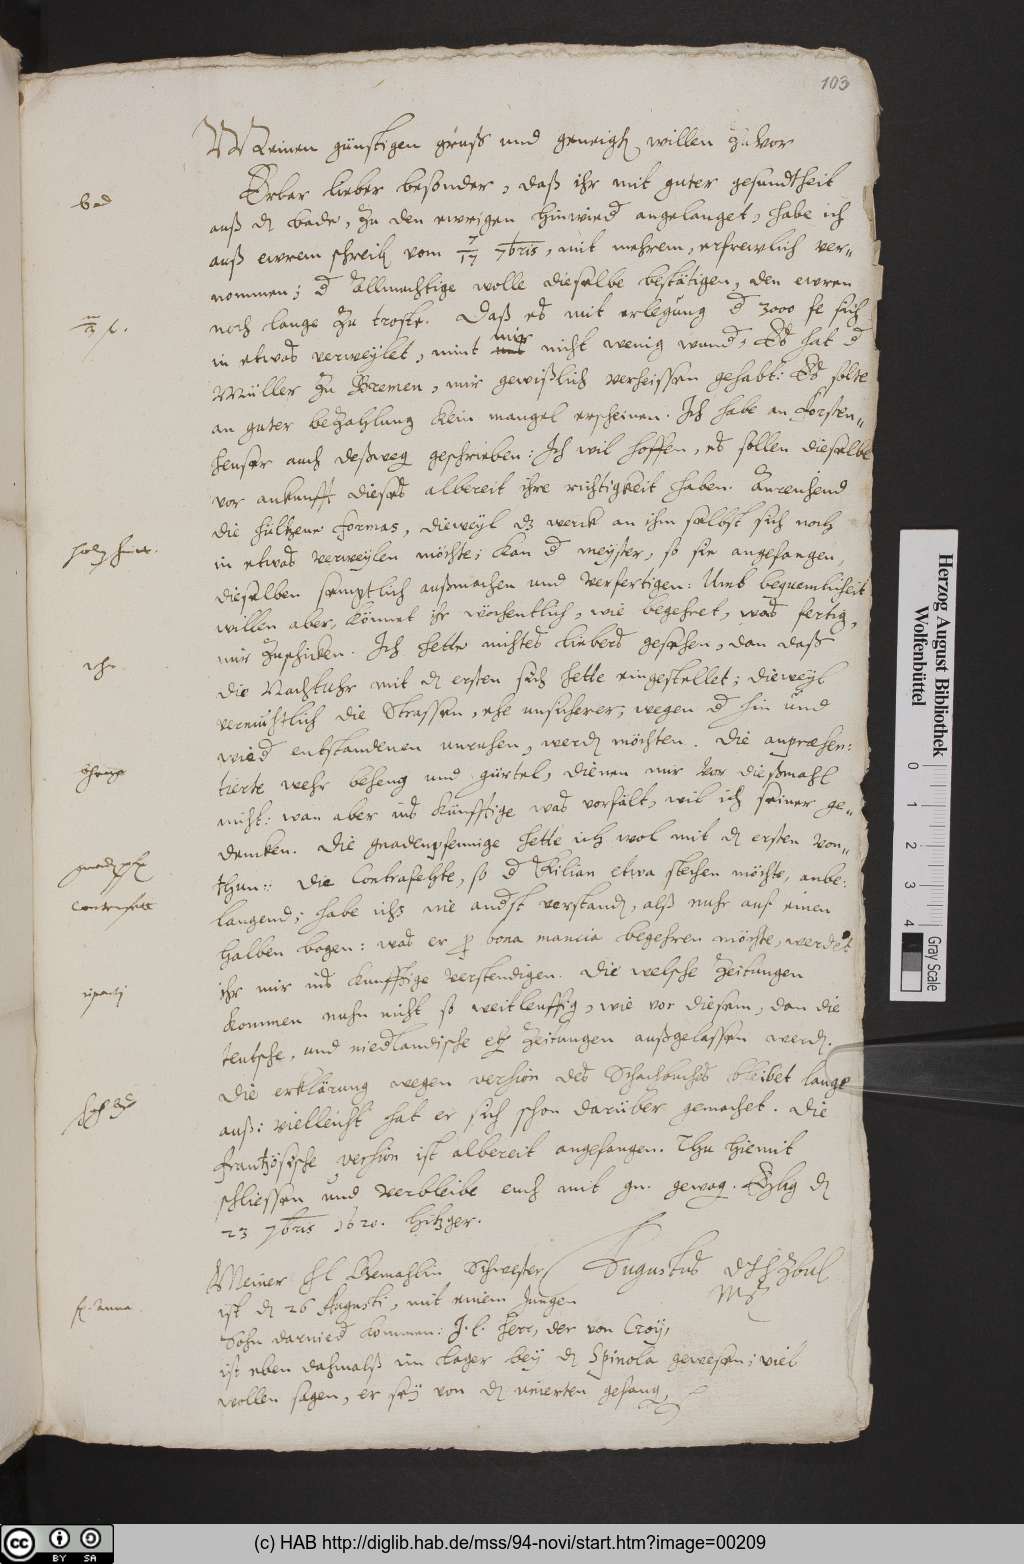 103
Meinen günstigen gruß und geneigten willen zuvor
Erbar lieber besonder, daß ihr mit guter gesundtheit
auß dem bade, zu den ewrigen hinwied angelanget, habe ich
auß ewrem schreiben vom 7/17 7bris, mit mehrem, erfrewlich ver-
nommen; d Allmechtige wolle dieselbe bestätigen, den ewren
noch lange zu troste. Daß es mit erlegung d 3000 fl sich
in etwas verweylet, nimt mir nicht wenig wund; Es hat d
Müller zu Bremen, mir gewißlich verheissen gehabt: Es solte
an guter bezahlung kein mangel erscheinen. Ich habe an Forsten-
heuser auch deßweg geschrieben: Ich wil hoffen, es sollen dieselbe
vor ankunfft dieses albereit ihre richtigkeit haben. Anreichend
die hültzene formas, dieweyl dz werck an ihm selbst sich noch
in etwas verweylen möchte; kan d meyster, so sie angefangen,
dieselben semptlich außmachen und verfertigen: Umb bequemlicheit
willen aber, könnet ihr wöchentlich, wie begehret, was fertig,
mir zuschicken. Ich hette nichtes liebers gesehen, dan daß
die Nachfuhr mit den ersten sich hette eingestellet; dieweyl
vermuhtlich die Strassen, ehe unsicherer, wegen d hin und
wied entstandenen unruhen, werden möchten. Die anpræsen-
tierte wehr beheng und gürtel, dienen mir vor dießmahl
nicht: wan aber ins künfftige was vorfält, wil ich seiner ge-
dencken. Die gnadenpfennige hette ich wol mit den ersten von-
thun:: Die Contrafehte, so d Kilian etwa stechen möchte, anbe-
langend; habe ichs nie andst verstanden, alß nuhr auf einen
halben bogen: was er p bona mancia begehren möchte, werdet
ihr mir ins kunfftige verstendigen. Die welsche Zeitungen
kommen nuhn nicht so weitleufftig, wie vor diesem, dan die
teutsche, und niedlandische etc Zeitungen außgelassen werden.
Die erklärung wegen version des Schachbuches bleibet lange
auß: vielleicht hat er sich schon darüber gemachet. Die
frantzösische version ist albereit angefangen. Thu hiemit
schliessen und verbleibe euch mit gn. gewog. Dat den
23 7bris 1620. Hitzger.
Augustus
Meiner hl Gemahlin Schwester
ist den 26 Augusti, mit einem jungen
Sohn darnied kommen: I. l. Herr, der von Croy,
ist eben dahmalß im lager bey dem Spinola gewesen; viel
wollen sagen, er sey von den unierten gefang.
Bad
Contrafette
Anna
Herzog August Bibliothek
Wolfenbüttel
0 1 2 3 4
Gray Scale
CC BY SA
(c) HAB http://diglib.hab.de/mss/94-novi/start.htm?image=00209